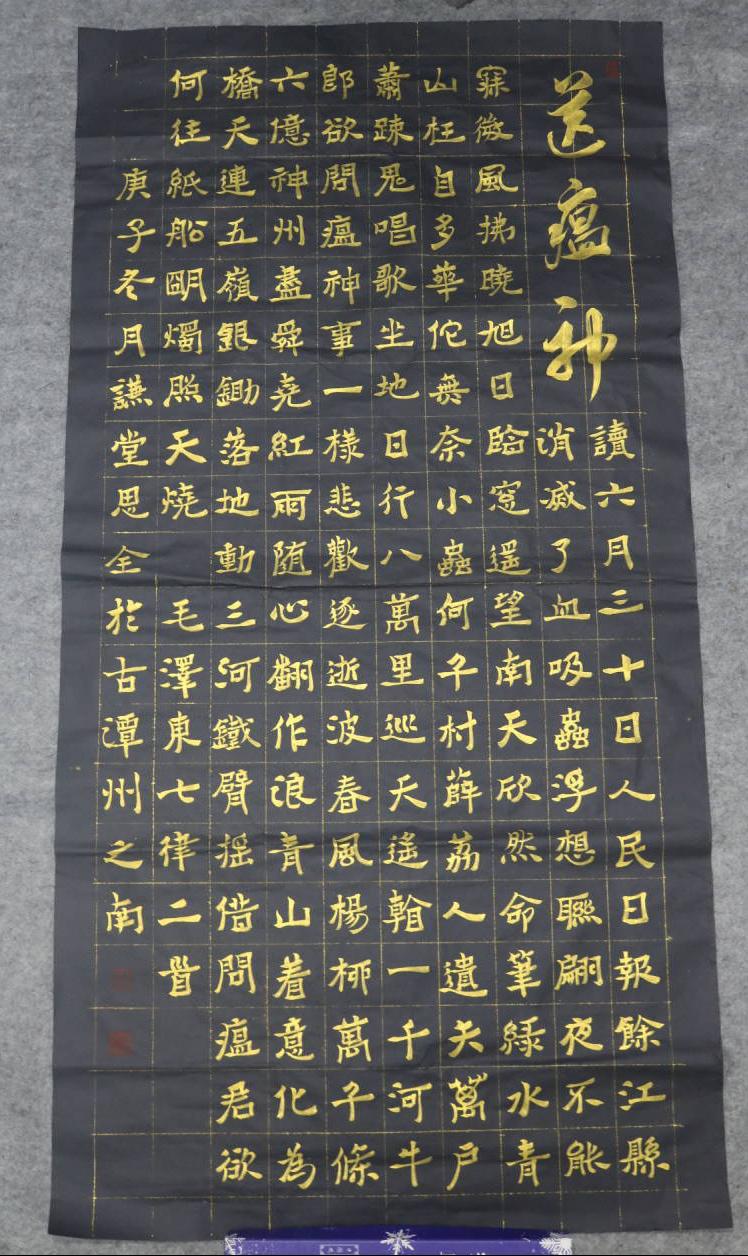 送瘟神
讀六月三十日人民日報餘江縣
消滅了血吸蟲浮想聯翩夜不能
寐微風拂曉旭日臨窓遥望南天欣然命筆綠水青
山枉自多華佗無奈小蟲何千村薜荔人遺矢萬戶
蕭疎鬼唱歌坐地日行八萬里巡天遙看一千河牛
郎欲問瘟神事一樣悲歡逐逝波春風楊柳萬千條
六億神州盡舜堯紅雨随心翻作浪青山着意化為
橋天連五嶺銀鋤落地動三河鐵臂摇借問瘟君欲
何往紙船朙燭照天燒 毛澤東七律二首
庚子冬月謙堂思全於古潭州之南